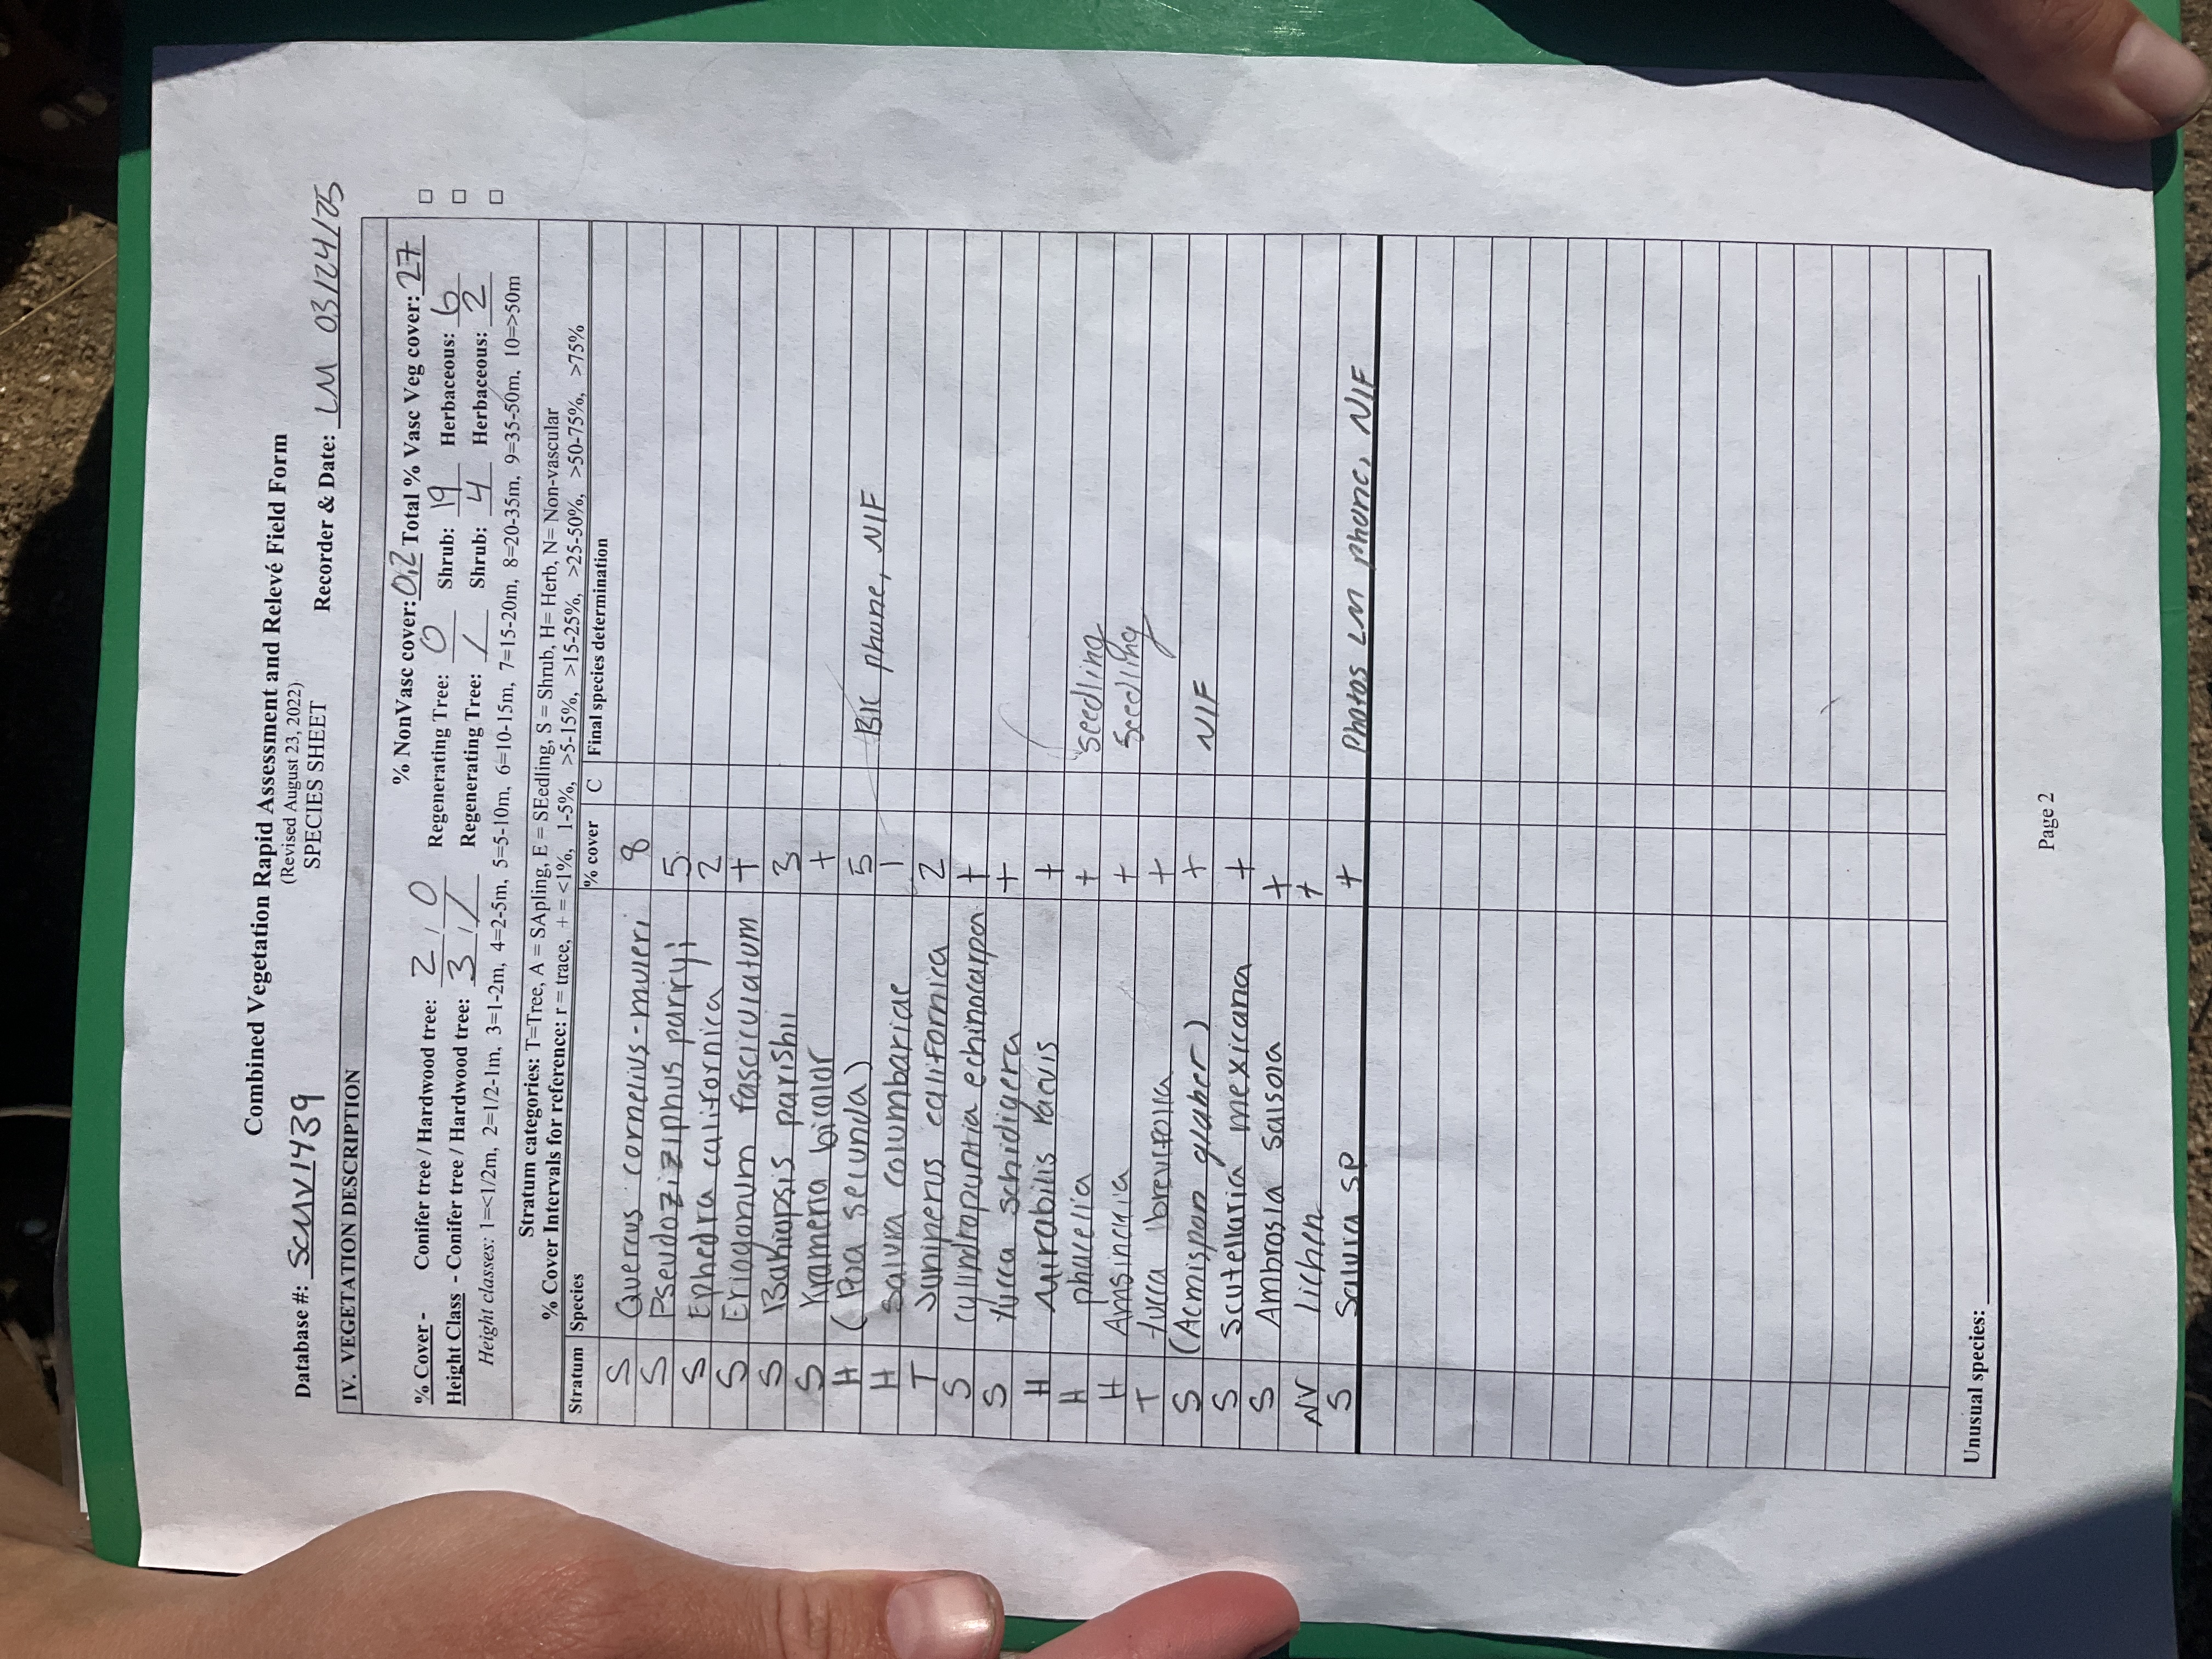 Combined Vegetation Rapid Assessment and Relevé Field Form
(Revised August 23, 2022)
SPECIES SHEET
Database #: SCUV1439 Recorder & Date: LM 03/24/25
IV. VEGETATION DESCRIPTION
% NonVasc cover: 0.2 Total % Vasc Veg cover: 27
% Cover - Conifer tree / Hardwood tree: 2 / 0 Regenerating Tree: 0 Shrub: 19 Herbaceous: 6
Height Class - Conifer tree / Hardwood tree: 3 / / Regenerating Tree: / Shrub: 4 Herbaceous: 2
Height classes: 1=<1/2m, 2=1/2-1m, 3=1-2m, 4=2-5m, 5=5-10m, 6=10-15m, 7=15-20m, 8=20-35m, 9=35-50m, 10=>50m
Stratum categories: T=Tree, A = SApling, E = SEedling, S = Shrub, H= Herb, N= Non-vascular
% Cover Intervals for reference: r = trace, + = <1%, 1-5%, >5-15%, >15-25%, >25-50%, >50-75%, >75%
Stratum Species % cover C Final species determination
S Quercus cornelius-muleri 8
S Pseudoziziphus parryi 5
S Ephedra californica 2
S Eriogonum fasciculatum +
S Bahiopsis parishii 3
S Krameria bicolor +
H (Poa secunda) 5 BK phone, NIF
H Salvia columbariae 1
T Juniperus californica 2
S Cylindropuntia echinocarpa +
S Yucca schidigera +
H Mirabilis laevis +
H phacelia + seedling
H Amsinckia + seedling
T Yucca brevifolia +
S (Acmispon glaber) + NIF
S Scutellaria mexicana +
S Ambrosia salsola +
NV lichen +
S Salvia sp + Photos LM phone, NIF
Unusual species:
Page 2